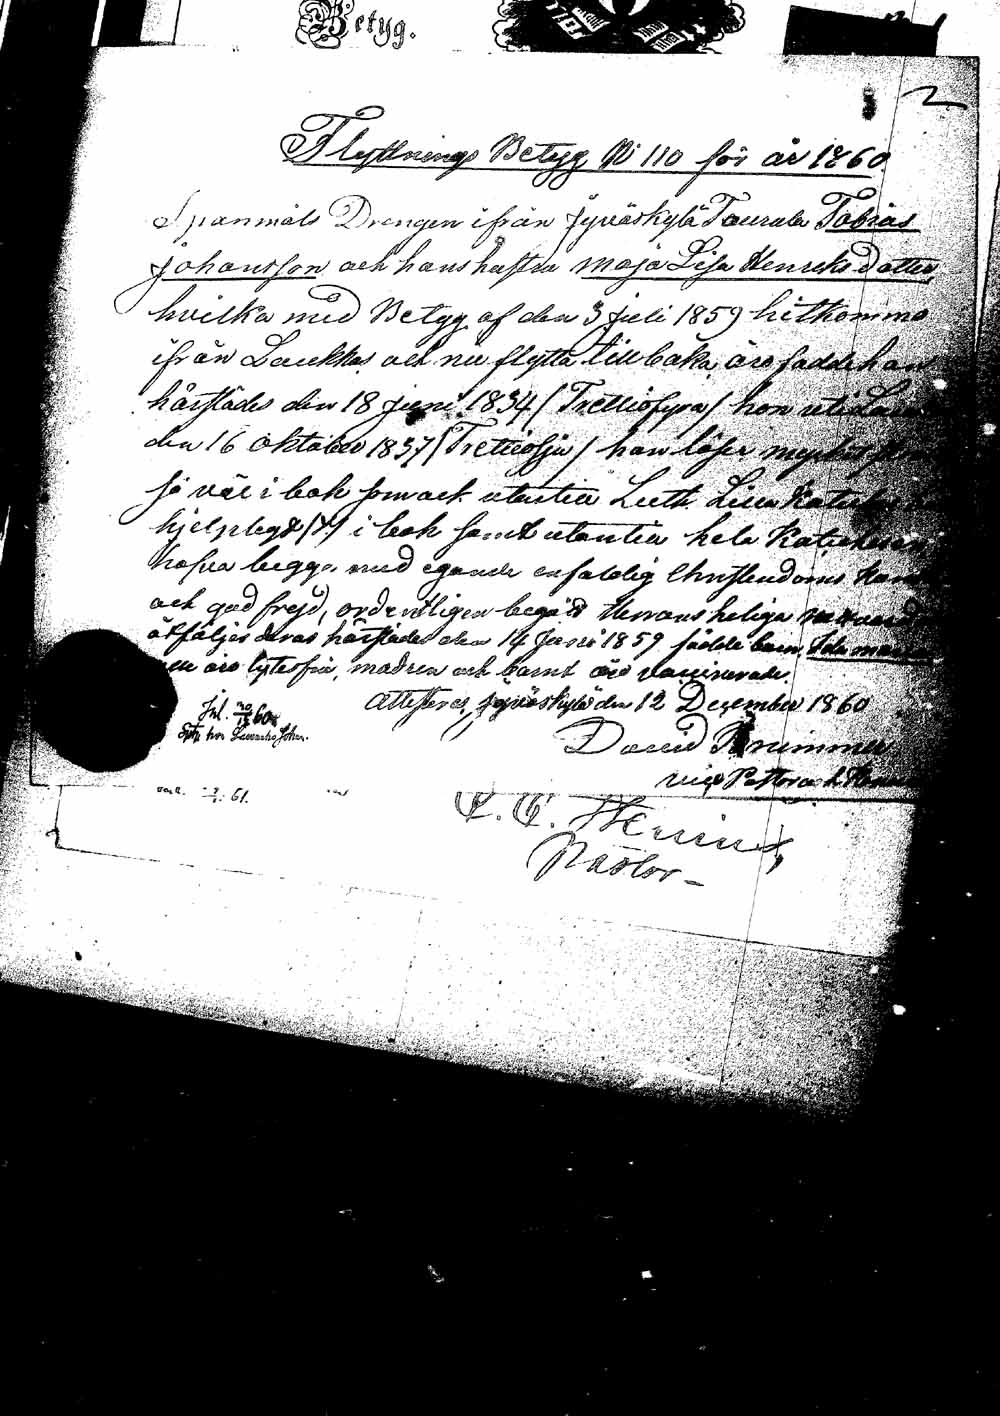 Betyg.
2
Flyttnings Betyg No 110 för år 1860.
Spanmåls Drengen ifrån Jyväskylä Taurula Tobias
Johansson och hans hustru Maja Lisa Henriksdotter
hvilka med Betyg af den 3 Juli 1859 hitkommo
ifrån Laukkas och nu flytta tillbaka, äro födde han
härstädes den 18 Juni 1834 (Trettiofyra) hon uti
den 16 Oktober 1837 (Trettiosju) han läser mycket
så väl i bok som ock utantill Luth. Lilla
hjelpligt i bok samt utantill hela
hafva begge med egande enfaldig Christendoms
och god frejd, ordentligen begått Herrans heliga
åtföljer deras härstädes den 14 Juni 1859 födde barn, Ida Maria
äro lytesfria, modren och barnt äro vaccinerade.
Attesteras, Jyväskylä den 12 December 1860
60
David
vice Pastor
61.
Pastor